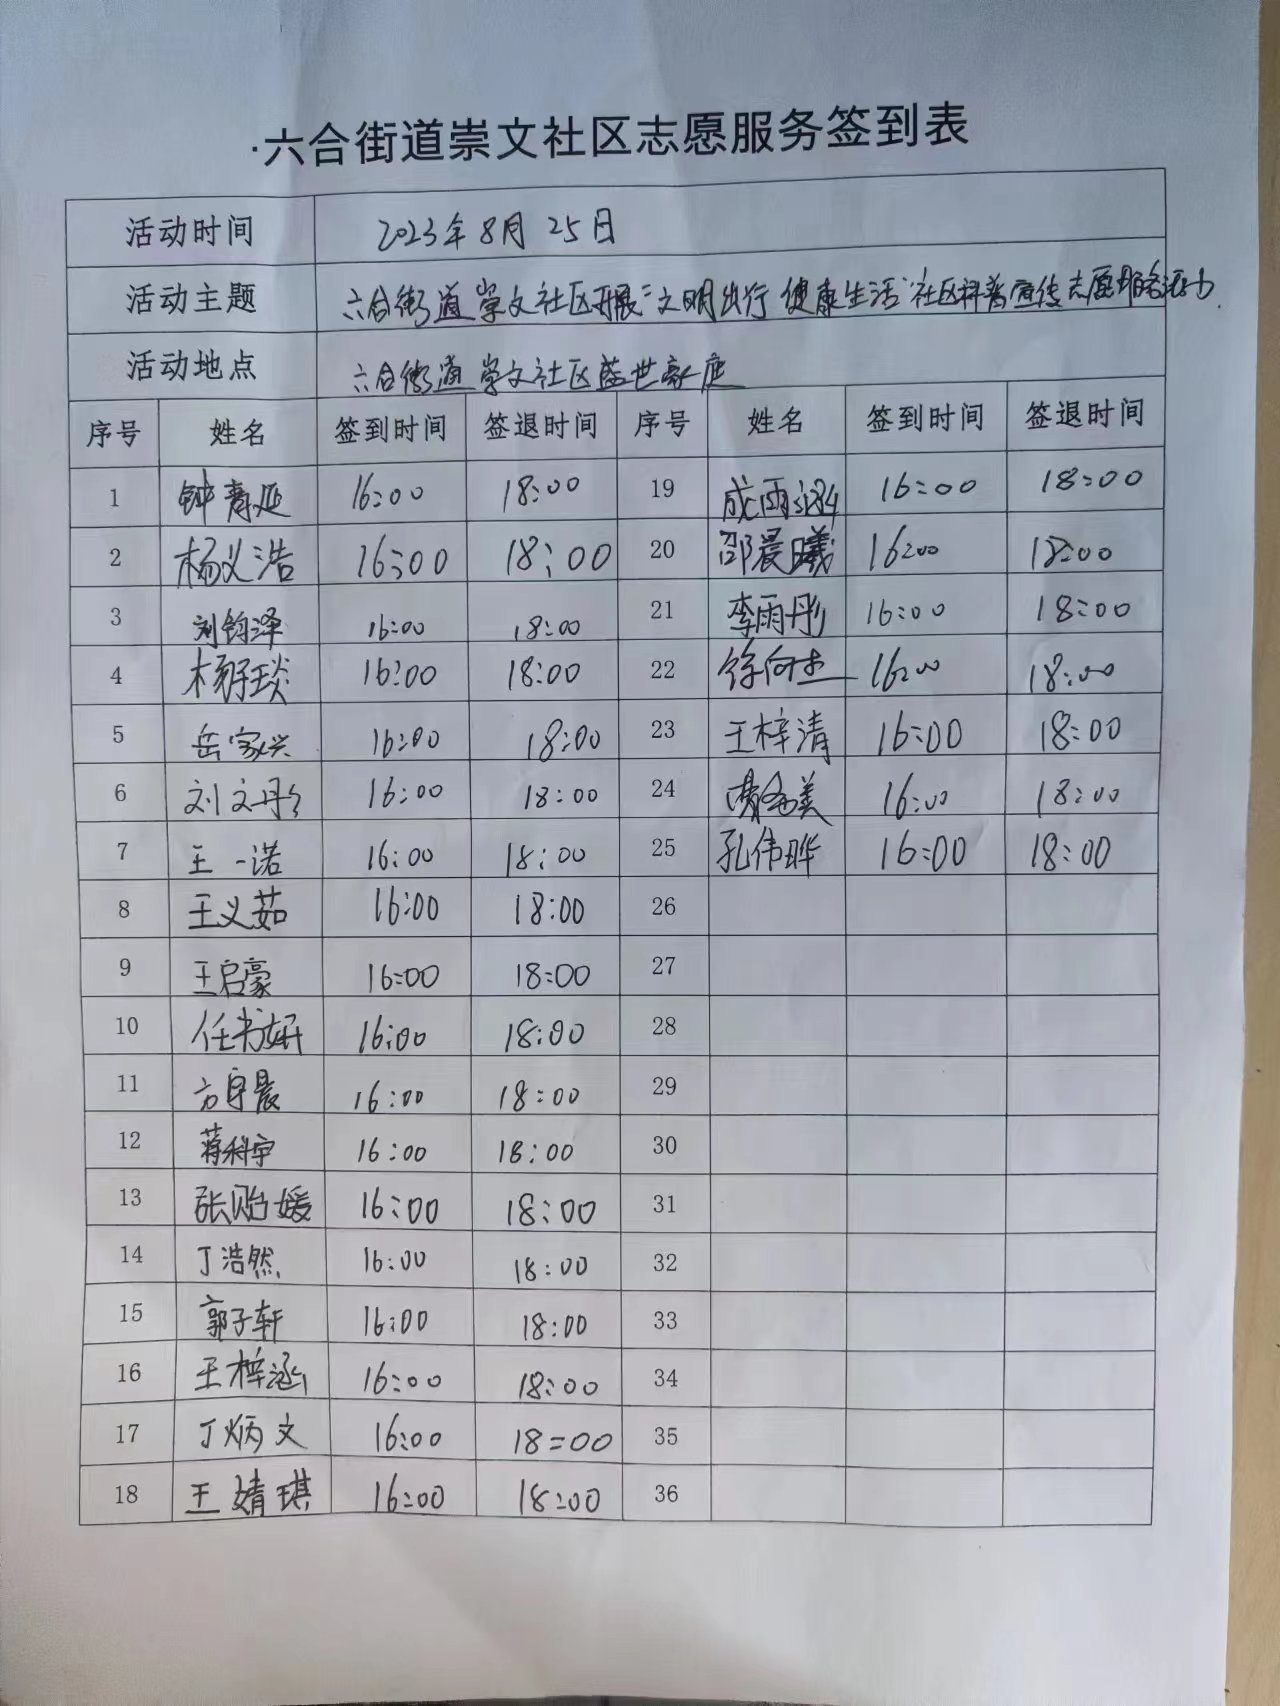 六合街道崇文社区志愿服务签到表
活动时间 2023年8月25日
活动主题 六合街道崇文社区开展"文明出行 健康生活"社区科普宣传志愿服务活动
活动地点 六合街道崇文社区盛世豪庭
序号 姓名 签到时间 签退时间 序号 姓名 签到时间 签退时间
1 钟 16:00 18:00 19 成雨涵 16:00 18:00
2 杨义浩 16:00 18:00 20 邵晨曦 16:00 18:00
3 刘钧泽 16:00 18:00 21 李雨彤 16:00 18:00
4 杨子琰 16:00 18:00 22 徐向 16:00 18:00
5 岳家兴 16:00 18:00 23 王梓清 16:00 18:00
6 刘文彤 16:00 18:00 24 美 16:00 18:00
7 王一诺 16:00 18:00 25 孔伟晔 16:00 18:00
8 王义茹 16:00 18:00 26
9 王启豪 16:00 18:00 27
10 任书妍 16:00 18:00 28
11 方宇晨 16:00 18:00 29
12 蒋科宇 16:00 18:00 30
13 张贻媛 16:00 18:00 31
14 丁浩然 16:00 18:00 32
15 郭子轩 16:00 18:00 33
16 王梓涵 16:00 18:00 34
17 丁炳文 16:00 18=00 35
18 王婧琪 16:00 18:00 36